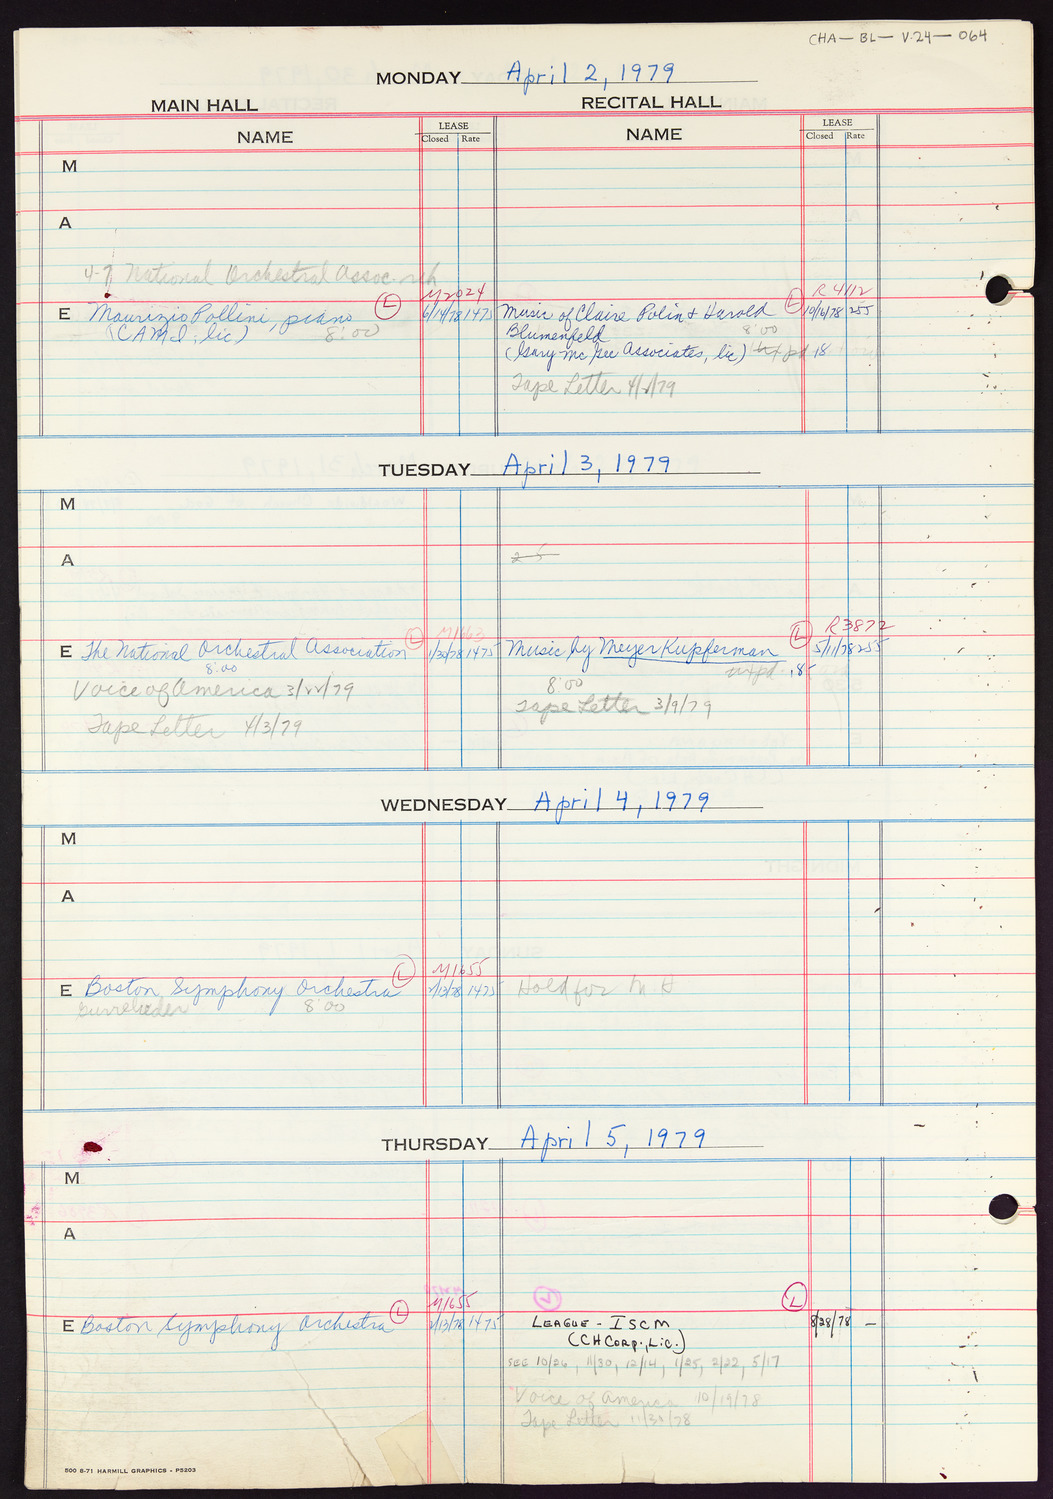 CHA—BL—V.24—064
MONDAY April 2, 1979
MAIN HALL RECITAL HALL
NAME LEASE Closed Rate NAME LEASE Closed Rate
M
A
4-7 National Orchestral Assoc. reh
M2024 R4112
E Maurizio Pollini, piano L 6/14/78 1475 Music of Claire Polin & Harold L 10/6/78 255
(CAMI, lic) 8:00 Blumenfeld 8:00
(Gary McGee Associates, lic) 18
Tape Letter 4/2/79
TUESDAY April 3, 1979
M
A 2-5
M1663 R3872
E The National Orchestral Association L 1/30/78 1475 Music by Meyer Kupferman L 5/11/78 255
8:00 mxpd 18
Voice of America 3/22/79 8:00
Tape Letter 4/3/79 Tape Letter 3/9/79
WEDNESDAY April 4, 1979
M
A
M1655
E Boston Symphony Orchestra L 2/13/78 1475 Hold for M H
Gurrelieder 8:00
THURSDAY April 5, 1979
M
A
M1655
E Boston Symphony Orchestra L 2/13/78 1475 LEAGUE - ISCM L 8/28/78 —
(CHCorp., Lic.)
SEE 10/26, 11/30, 12/14, 1/25, 2/22, 5/17
Voice of America 10/19/78
Tape Letter 11/30/78
500 8-71 HARMILL GRAPHICS - P5203